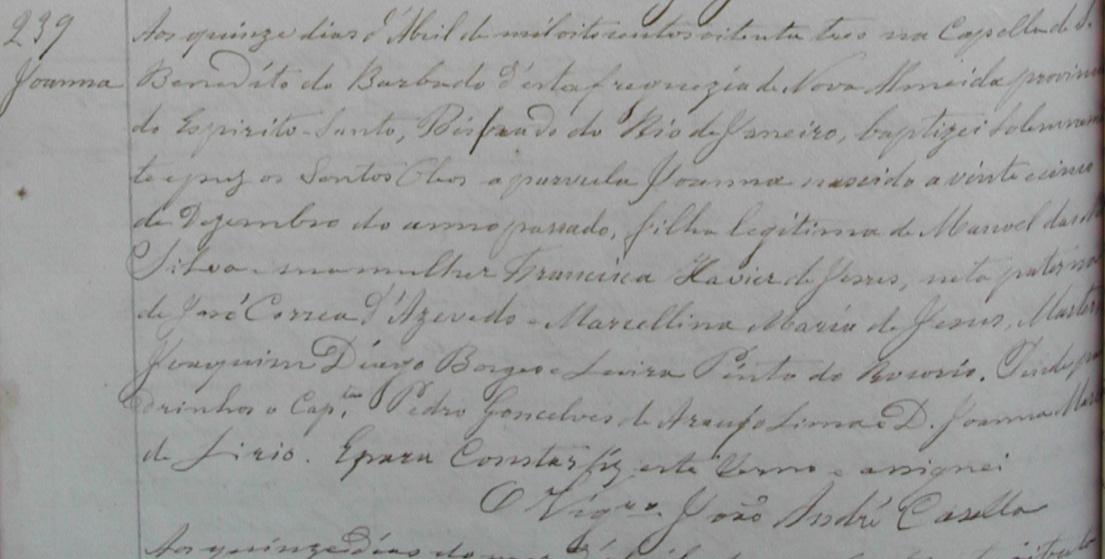 239
Joanna
Aos quinze dias d'Abril de mil oito centos oitenta tres na Capella de S.
Benedito do Barbado d'esta freonezia de Nova Almeida provin
do Espirito-Santo, Bispado do Rio de Janeiro, baptizei solemnem
te e puz os Santos Oleos a parvula Joanna nascida a vinte e cinco
de Dezembro do anno passado, filha legitima de Manoel da
Silva e sua mulher Francisca Xavier de Jesus, neta paterna
de José Correa d'Azevedo e Marcellina Maria de Jesus, Matern
Joaquim Diogo Borges e Pinto do Rosario.
drinhos o Cap.tão Pedro Goncalves de Araujo Lima e D. Joanna Mari
de Lirio. E para Constar fiz este termo e assignei
O Vigro. João André Casella
Aos quinze dias do